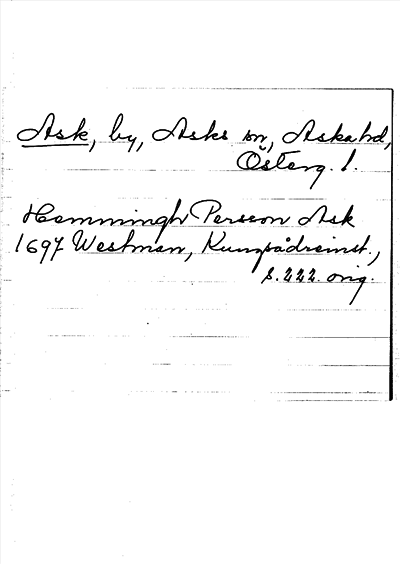 Ask, by, Asks sn, Askahd,
Österg. l.
Hemmingh Persson Ask
1697 Westman, Kungsådreinst.,
s. 222. orig.